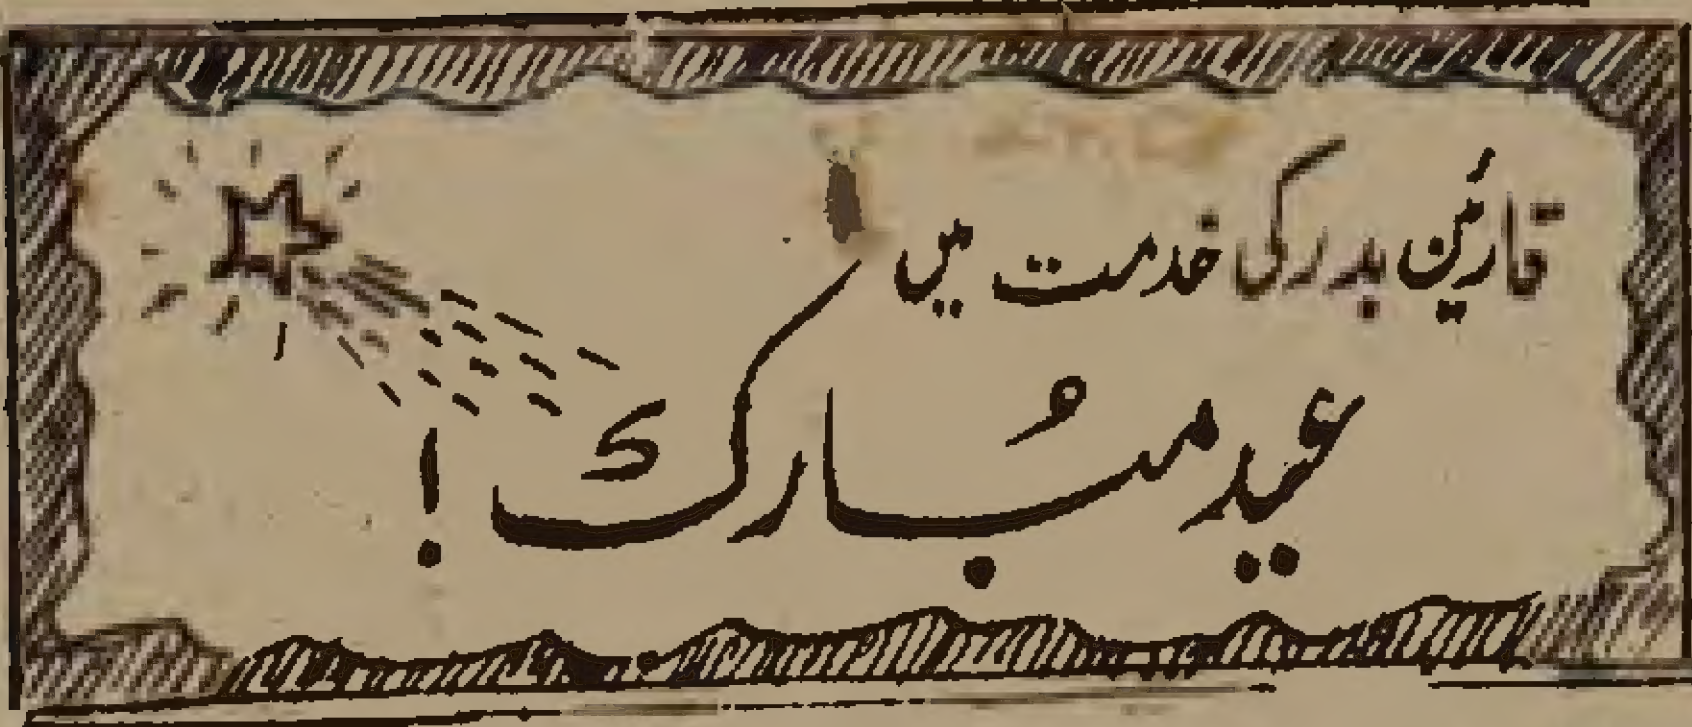 قارئین بدر کی خدمت میں
عید مُبارک!